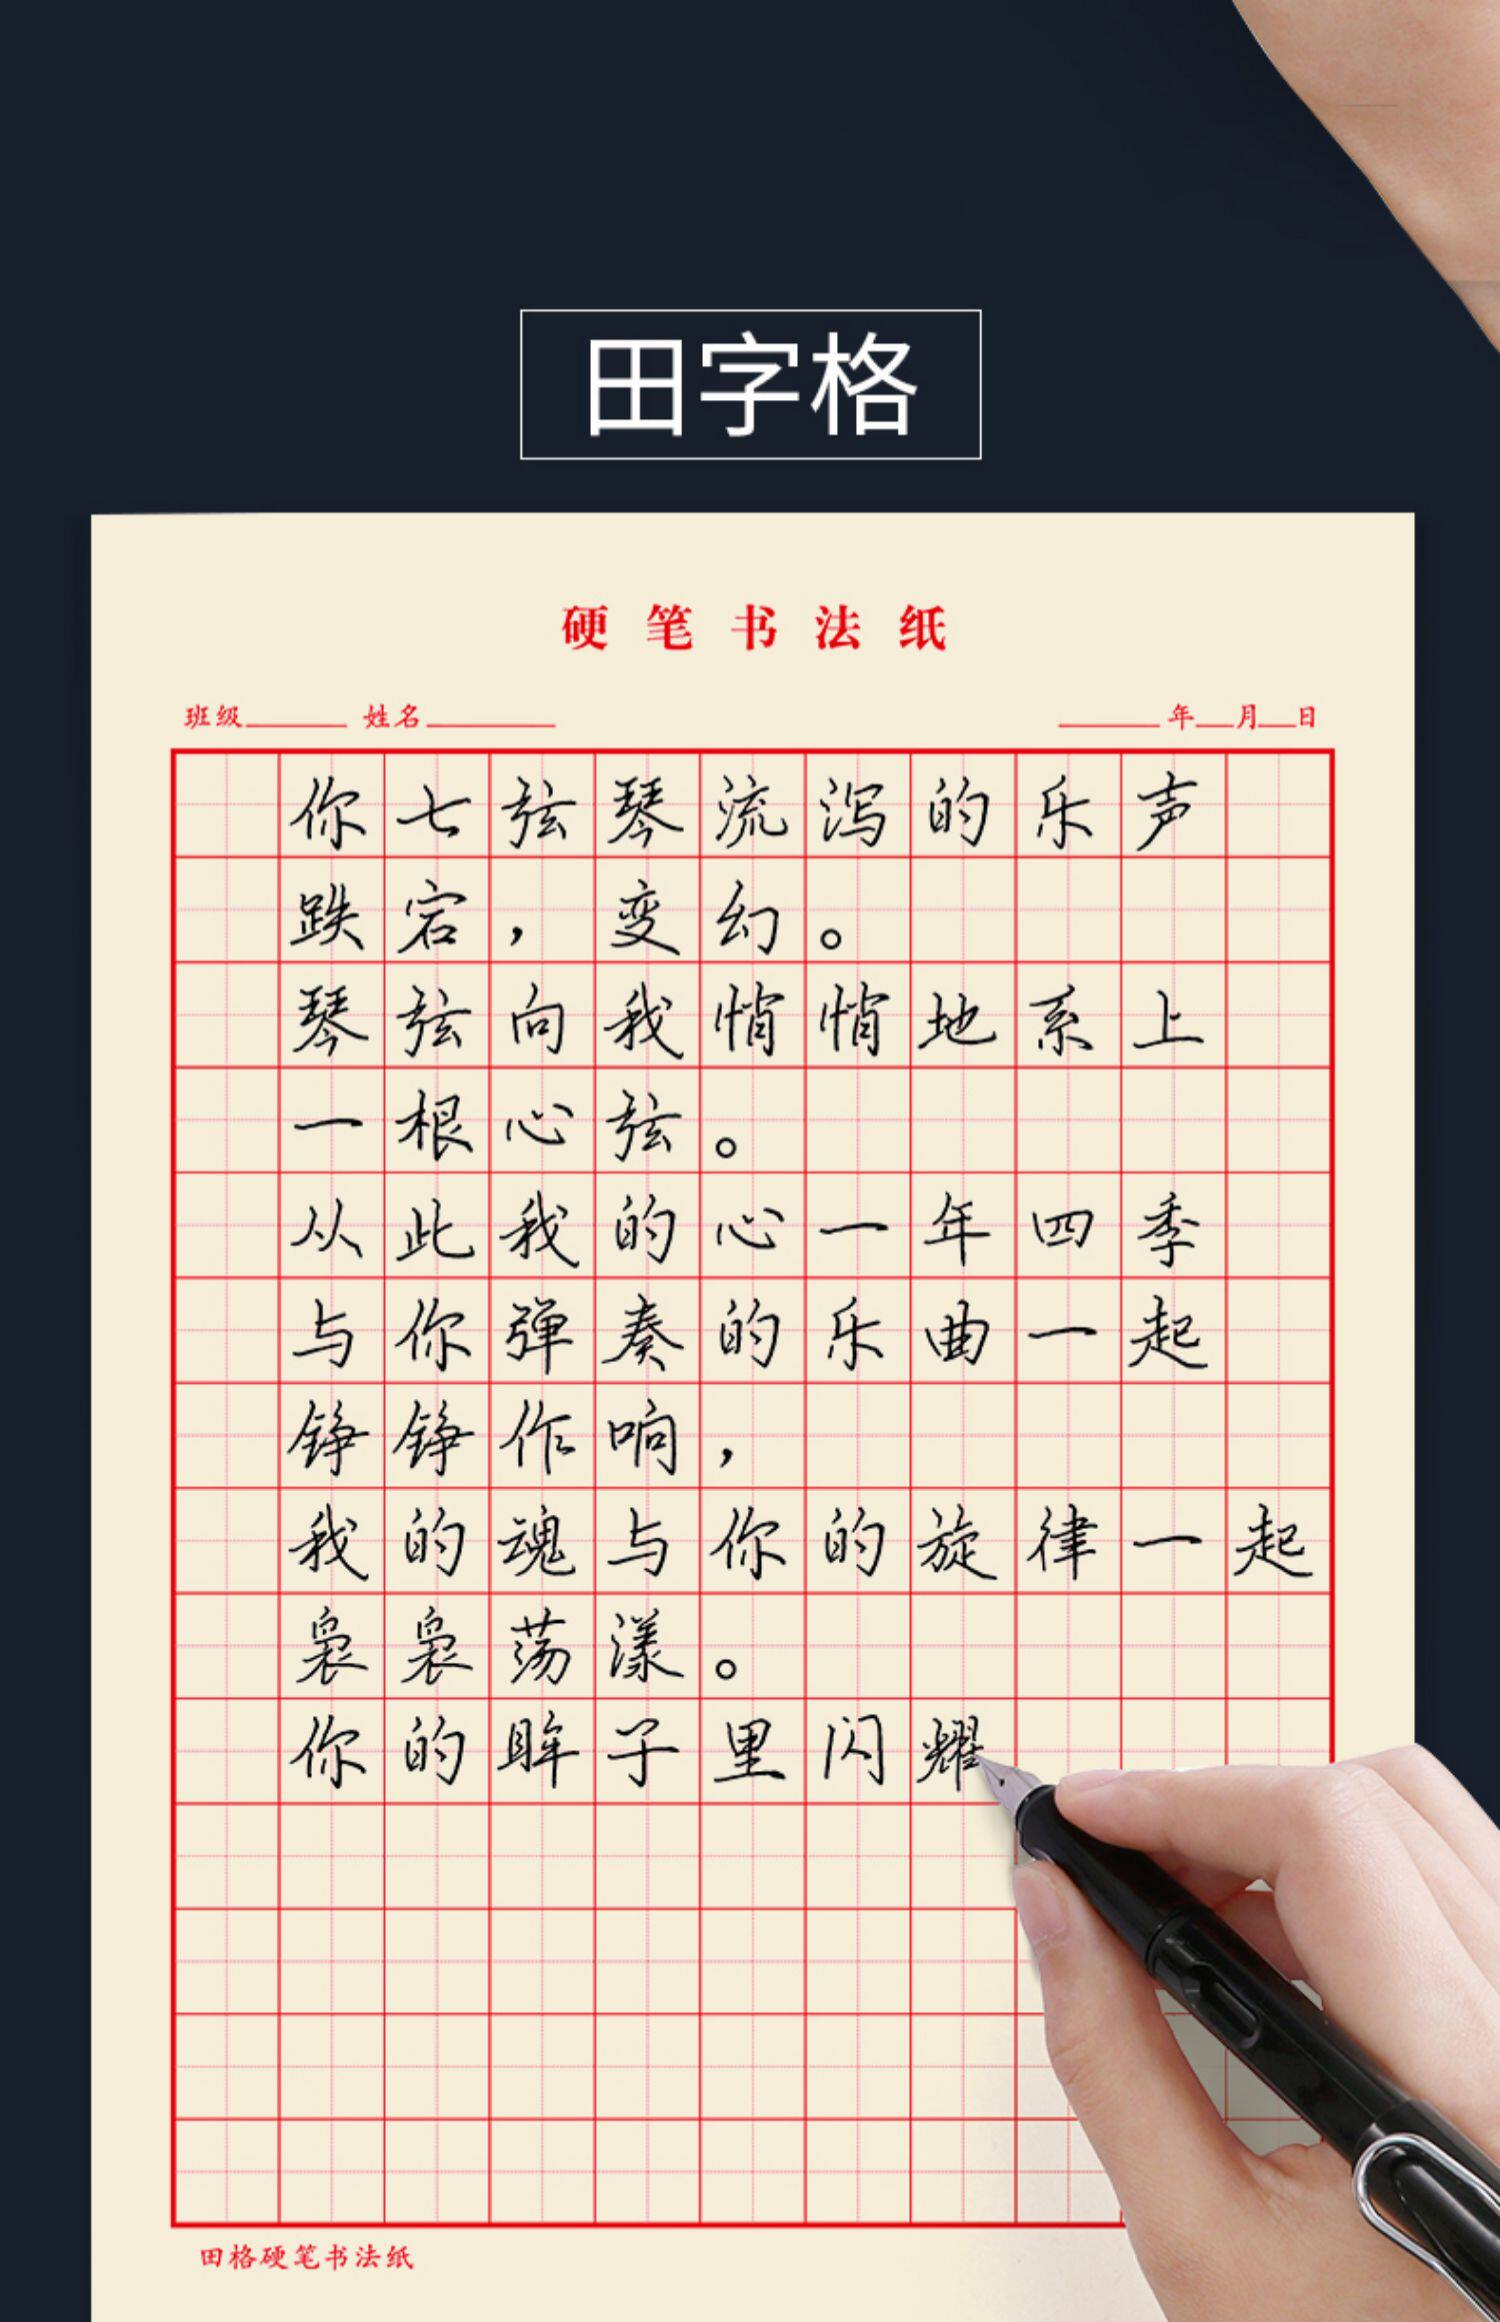 田字格
硬笔书法纸
班级______ 姓名________ ______年__月__日
你七弦琴流泻的乐声
跌宕，变幻。
琴弦向我悄悄地系上
一根心弦。
从此我的心一年四季
与你弹奏的乐曲一起
铮铮作响，
我的魂与你的旋律一起
袅袅荡漾。
你的眸子里闪耀
田格硬笔书法纸